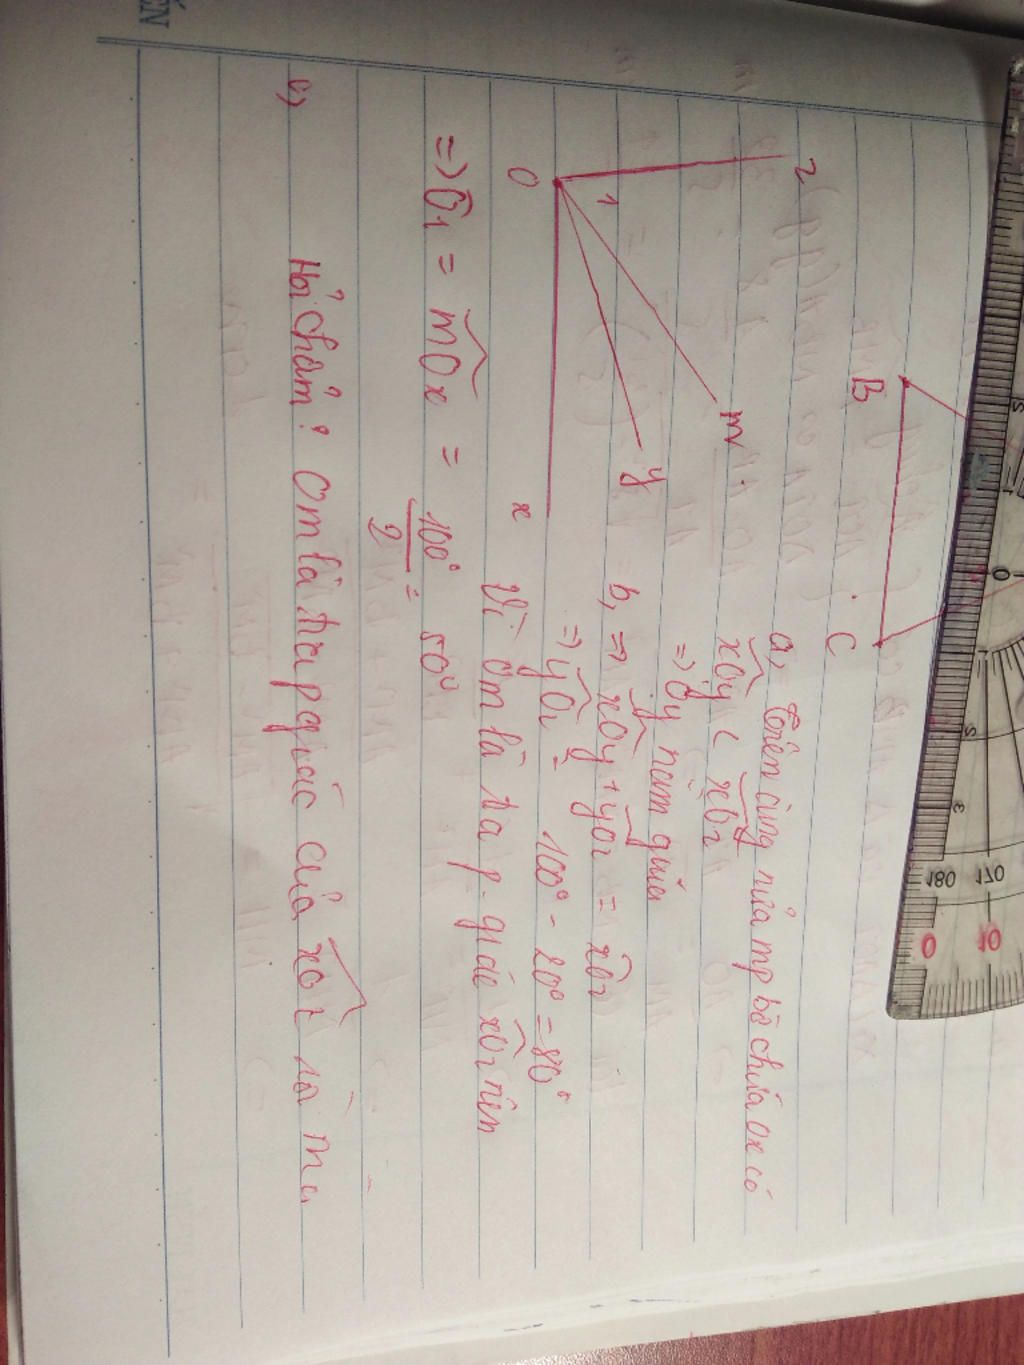 B
C
z
1
m
y
O
x
a, Trên cùng nửa mp bờ chứa Ox có
xOy < xOz
=> Oy nằm giữa
b, => xOy + yOz = xOz
=> yOz = 100° - 20° = 80°
Vì Om là tia p. giác xOz nên
=> O1 = mOx = 100°/2 = 50°
c) Om là tia p giác của xOz là
180 170
0 10
0